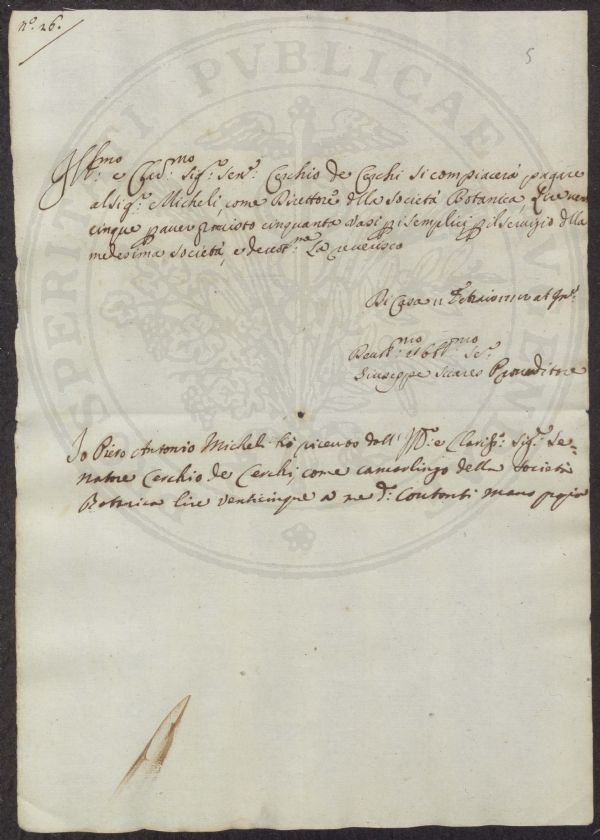 nº. 26.
5
Ill.mo e Clar.mo Sig.r Sen.r Cerchio de Cerchi si compiacerà pagare
al Sig.r Micheli, come Direttore della Società Botanica, Lire venti
cinque p aver provisto cinquanta vasi p i semplici p il servizio della
medesima società, e devot.me La reverisco
Di Casa 11 Febraio
Devot.mo Obbl.mo Se.r
Giuseppe Suares Proveditore
Io Piero Antonio Micheli hò ricevuto dall' Ill: e Clariss: Sig.r Se=
natore Cerchio de Cerchi, come camarlingo della Società
Botanica lire venticinque a me d. Contanti mano ppia
PROSPERITATI PVBLICAE ADVENTAE